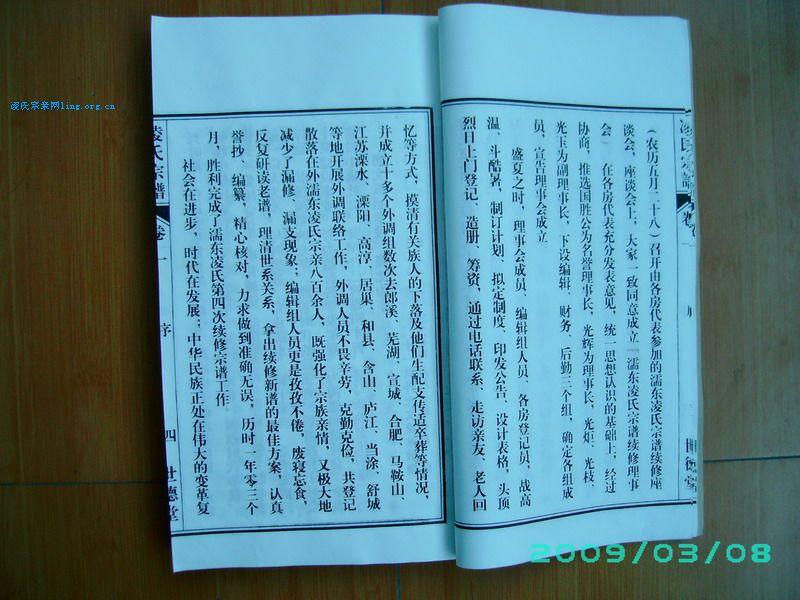 凌氏宗亲网ling.org.cn
凌氏宗譜
卷
(农历五月二十八)召开由各房代表参加的濡东凌氏宗谱续修座
谈会,座谈会上,大家一致同意成立「濡东凌氏宗谱续修理事
会」在各房代表充分发表意见,统一思想认识的基础上,经过
协商,推选国胜公为名誉理事长,光辉为理事长,光炬、光枝、
光玉为副理事长,下设编辑、财务、后勤三个组,确定各组成
员,宣告理事会成立
盛夏之时,理事会成员、编辑组人员、各房登记员,战高
温、斗酷暑,制订计划,拟定制度,印发公告、设计表格,头顶
烈日上门登记、造册、筹资,通过电话联系、走访亲友、老人回
忆等方式,摸清有关族人的下落及他们生配支传适卒葬等情况,
并成立十多个外调组数次去郎溪、芜湖、宣城、合肥、马鞍山、
江苏溧水、溧阳、高淳、居巢、和县、含山、庐江、当涂、舒城
等地开展外调联络工作,外调人员不畏辛劳,克勤克俭,共登记
散落在外濡东凌氏宗亲八百余人,既强化了宗族亲情,又极大地
减少了漏修、漏支现象;编辑组人员更是孜孜不倦,废寝忘食,
反复研读老谱,理清世系关系,拿出续修新谱的最佳方案,认真
誊抄、编纂,精心核对,力求做到准确无误,历时一年零三个
月,胜利完成了濡东凌氏第四次续修宗谱工作
社会在进步,时代在发展;中华民族正处在伟大的变革复
凌氏宗譜
卷一
序
四
世德堂
2009/03/08